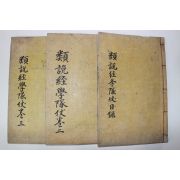 類說經學隊仗目錄
類說經學隊仗卷二
類說經學隊仗卷三